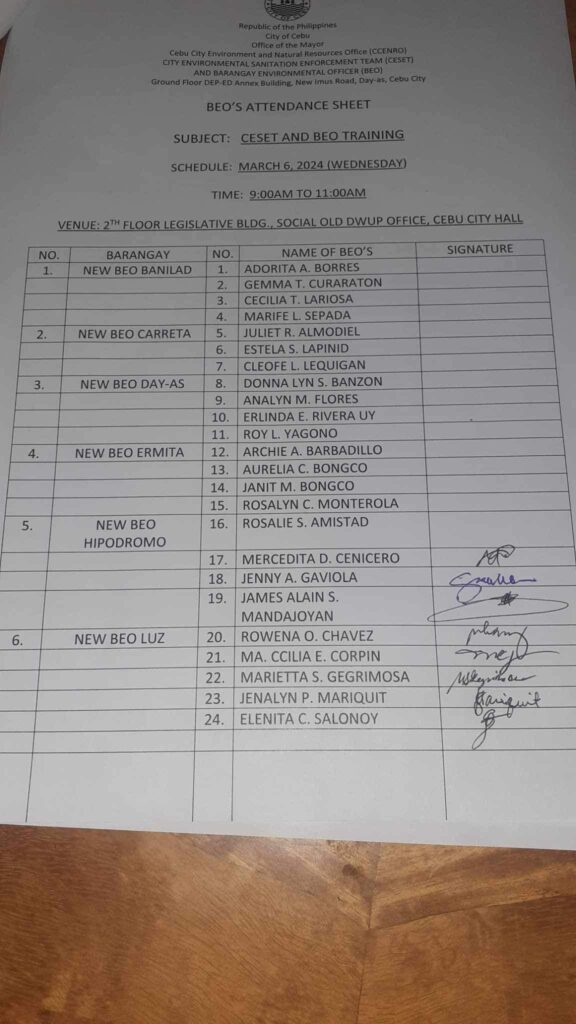 Republic of the Philippines
City of Cebu
Office of the Mayor
Cebu City Environment and Natural Resources Office (CCENRO)
CITY ENVIRONMENTAL SANITATION ENFORCEMENT TEAM (CESET)
AND BARANGAY ENVIRONMENTAL OFFICER (BEO)
Ground Floor DEP-ED Annex Building, New Imus Road, Day-as, Cebu City
BEO'S ATTENDANCE SHEET
SUBJECT: CESET AND BEO TRAINING
SCHEDULE: MARCH 6, 2024 (WEDNESDAY)
TIME: 9:00AM TO 11:00AM
VENUE: 2TH FLOOR LEGISLATIVE BLDG., SOCIAL OLD DWUP OFFICE, CEBU CITY HALL
NO. BARANGAY NO. NAME OF BEO'S SIGNATURE
1. NEW BEO BANILAD 1. ADORITA A. BORRES
2. GEMMA T. CURARATON
3. CECILIA T. LARIOSA
4. MARIFE L. SEPADA
2. NEW BEO CARRETA 5. JULIET R. ALMODIEL
6. ESTELA S. LAPINID
7. CLEOFE L. LEQUIGAN
3. NEW BEO DAY-AS 8. DONNA LYN S. BANZON
9. ANALYN M. FLORES
10. ERLINDA E. RIVERA UY
11. ROY L. YAGONO
4. NEW BEO ERMITA 12. ARCHIE A. BARBADILLO
13. AURELIA C. BONGCO
14. JANIT M. BONGCO
15. ROSALYN C. MONTEROLA
5. NEW BEO 16. ROSALIE S. AMISTAD
HIPODROMO
17. MERCEDITA D. CENICERO
18. JENNY A. GAVIOLA
19. JAMES ALAIN S.
MANDAJOYAN
6. NEW BEO LUZ 20. ROWENA O. CHAVEZ
21. MA. CCILIA E. CORPIN
22. MARIETTA S. GEGRIMOSA
23. JENALYN P. MARIQUIT
24. ELENITA C. SALONOY